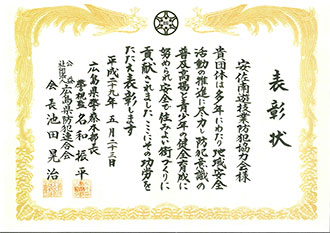 表彰状
安佐南遊技業防犯協力会様
貴団体は多年にわたり地域安全
活動の推進に尽力し防犯意識の
普及高揚と青少年の健全育成に
努められ安全で住みよい街づくりに
貢献されました ここにその功労を
たたえ表彰します
平成二十九年 五月二十三日
広島県警察本部長
警視監 名和振平
公益社団法人 広島県防犯連合会
会長 池田晃治